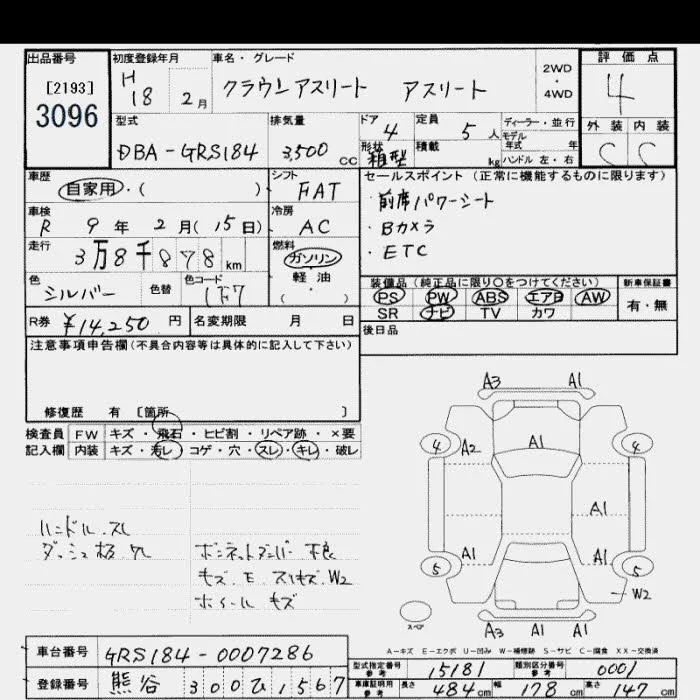 出品番号
[2193]
3096
初度登録年月
H 18 2月
車名・グレード
クラウンアスリート アスリート
2WD
・
4WD
評価点
4
外装 内装
C C
型式
DBA-GRS184
排気量
3,500 cc
ドア
4
形状
箱型
定員
5人
積載
kg
ディーラー・並行
モデル
年式 年
ハンドル 左・右
車歴
自家用・( )
シフト
FAT
車検
R 9年 2月(15日)
冷房
AC
走行
3万8千878 km
燃料
ガソリン
軽・油
( )
色
シルバー
色替
色コード
1F7
R券 ¥14,250円
名変期限 月 日
セールスポイント(正常に機能するものに限ります)
・前席パワーシート
・Bカメラ
・ETC
装備品(純正品に限り○をつけてください)
PS PW ABS エアB AW
SR ナビ TV カワ
新車保証書
有・無
後日品
注意事項申告欄(不具合内容等は具体的に記入して下さい)
修復歴 有 [箇所 ]
検査員
記入欄
FW キズ・飛石・ヒビ割・リペア跡・×要
内装 キズ・汚レ・コゲ・穴・スレ・キレ・破レ
ハンドル.スレ
ボンネットダンパー不良
キズ.E.スリキズ.W2
ホイールキズ
A3 A1
4 A2 A1 4
A1
A1 A1
5 5
W2
スペア
A3 A1 A1
A-キズ E-エクボ U-凹み W-補修跡 S-サビ C-腐食 XX-交換済
車台番号
GRS184-0007286
登録番号
熊谷 300 ひ 1567
型式指定番号
参考
15181
類別区分番号
参考
0001
車庫証明用
参考
長さ 484cm 幅 178cm 高さ 147cm